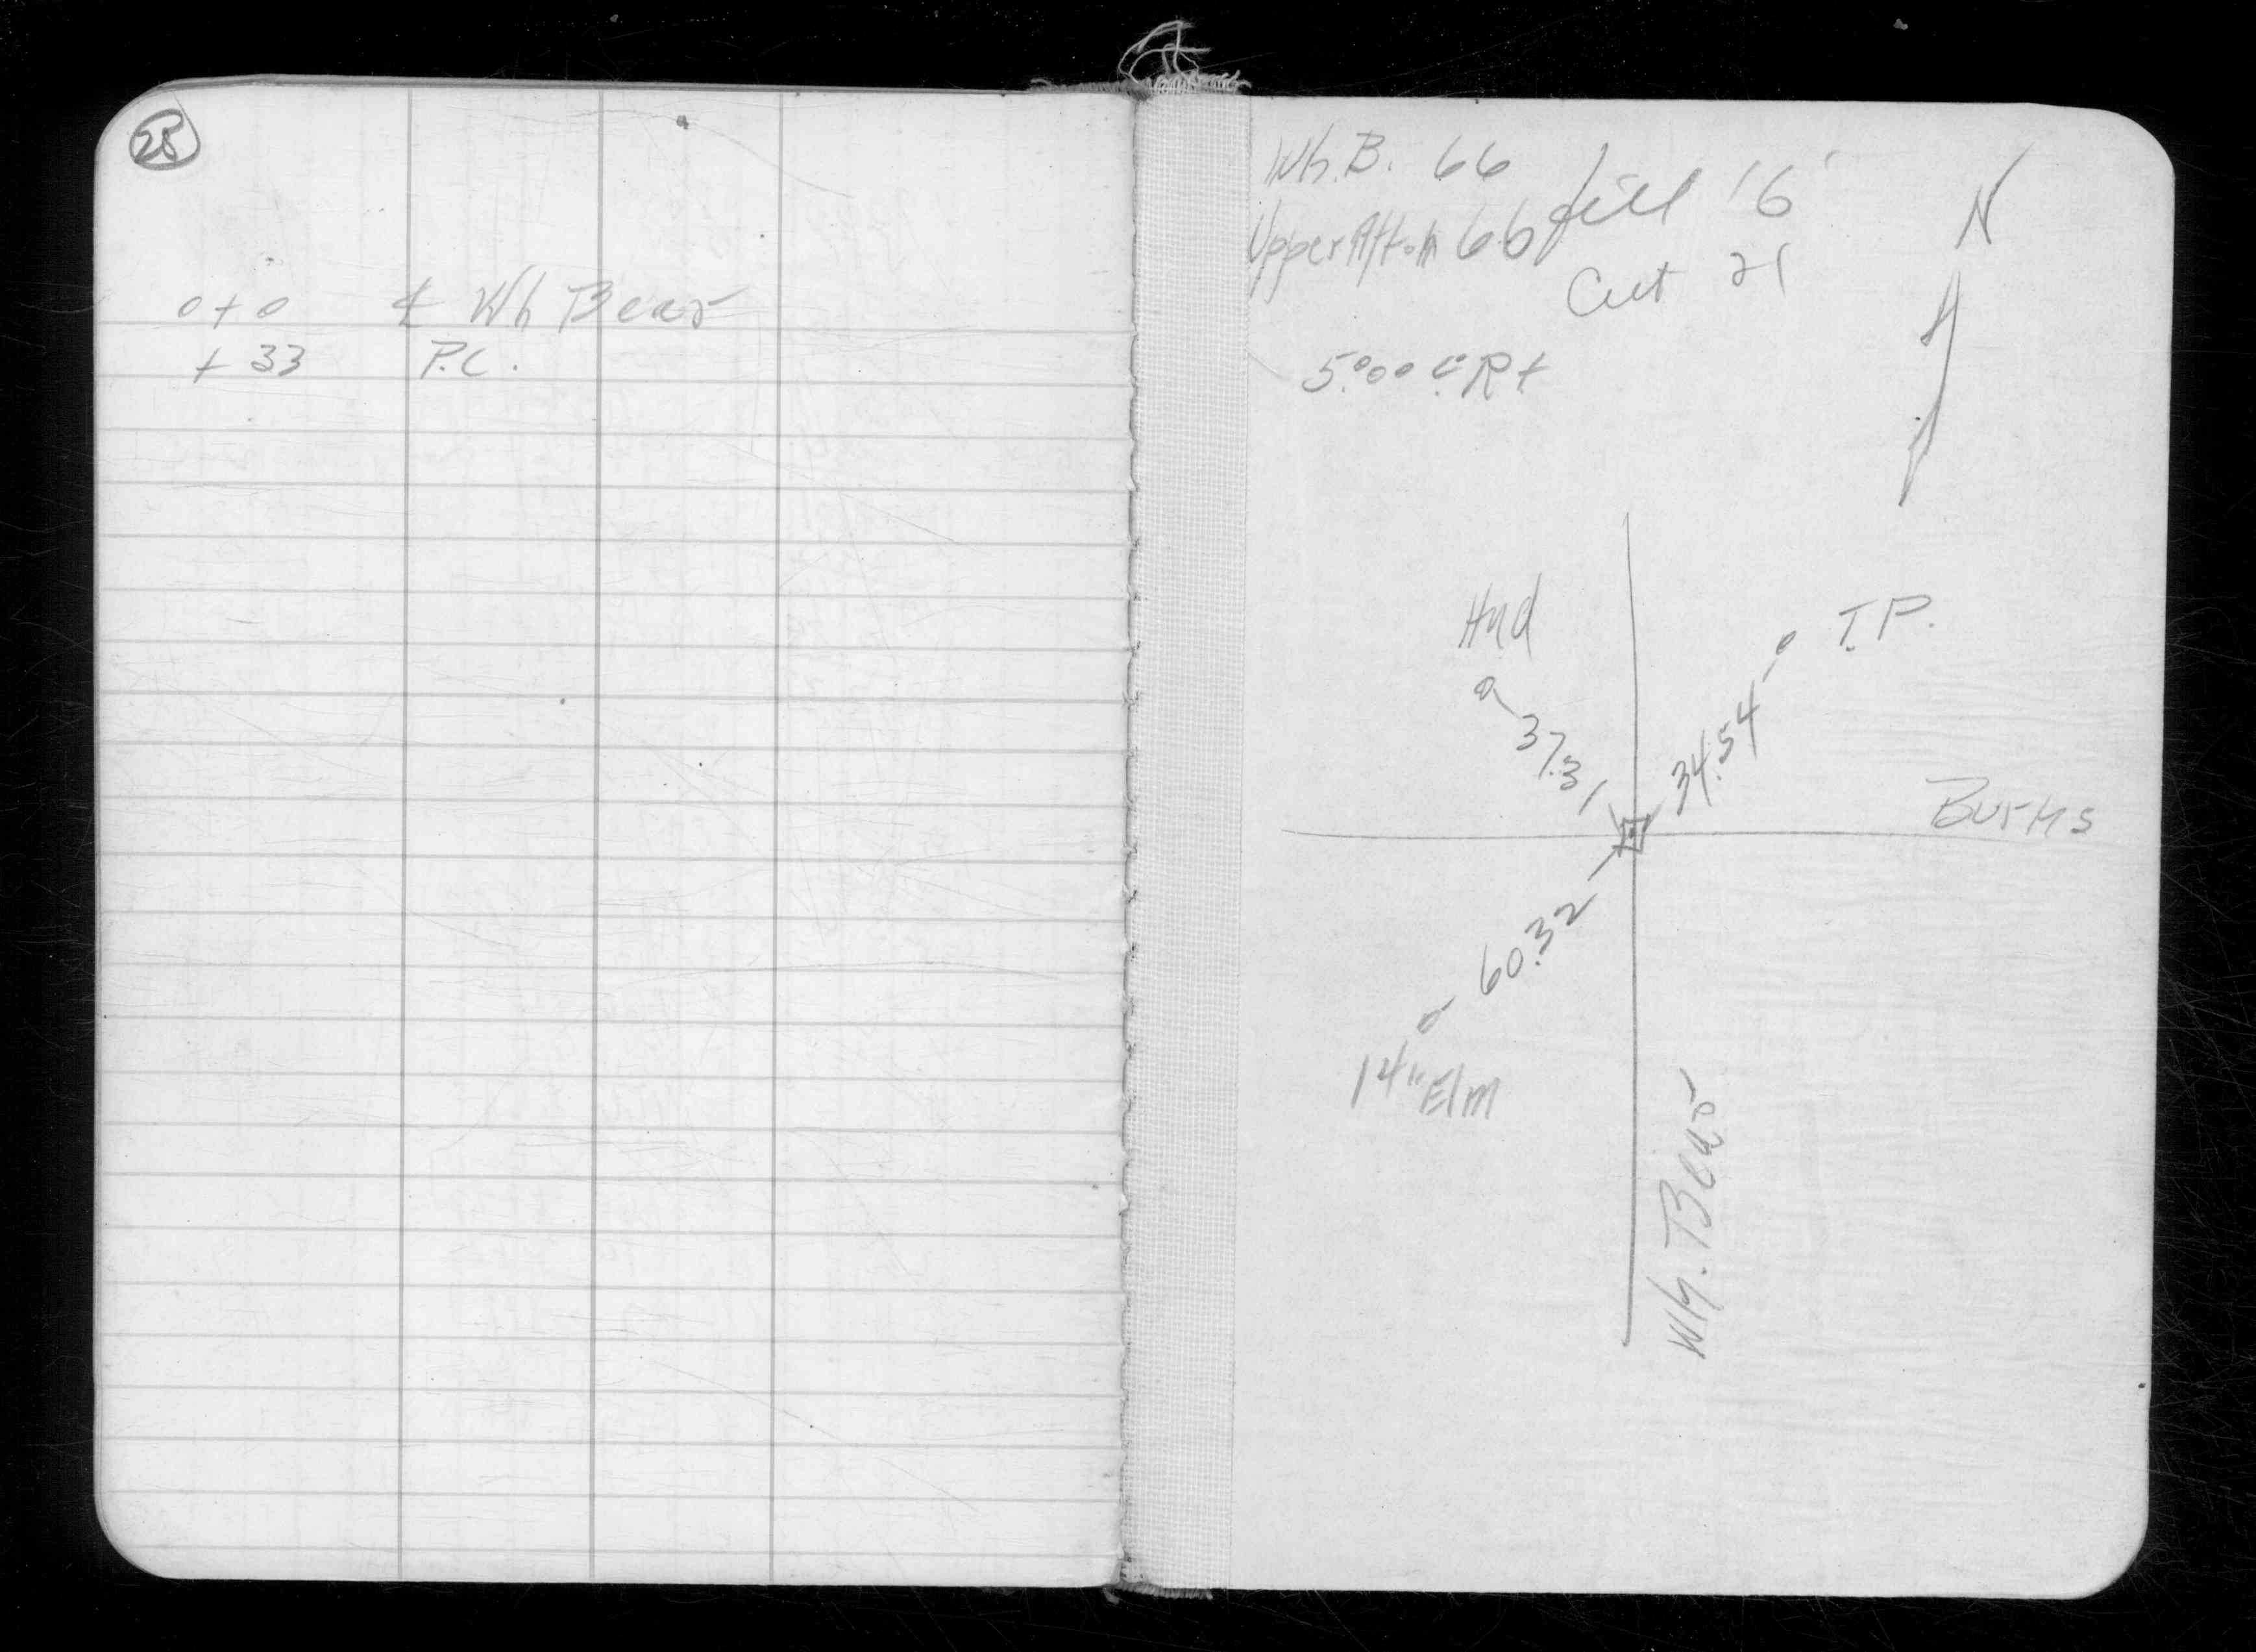 28
0+0 ℄ Wh Bear
+33 P.C.
Wh.B. 66
Upper Afton 66
fill '6'
Cut 21
5°00' Rt
N
Hyd
T.P.
37.31
34.54
Burns
60.32
14" Elm
Wh. Bear